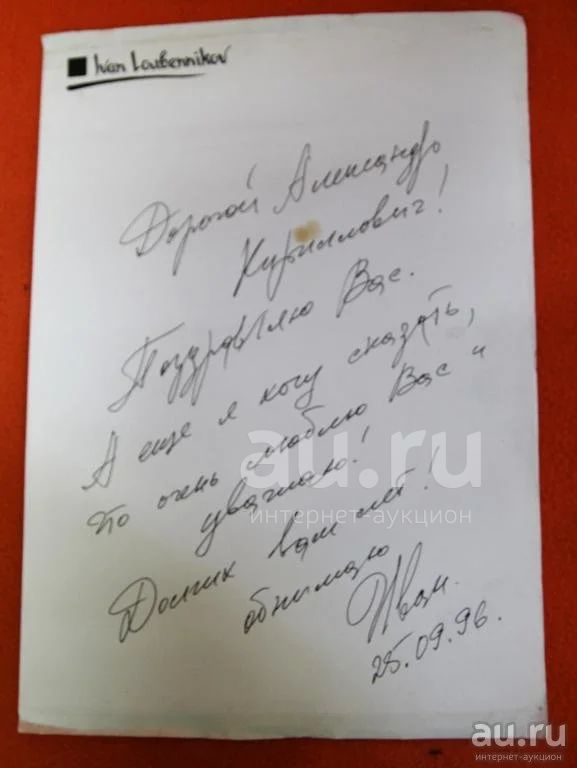 Ivan Loubennikov
Дорогой Александр
Кириллович!
Поздравляю Вас.
А еще я хочу сказать,
что очень люблю Вас и
уважаю!
Долгих вам лет!
обнимаю
Иван.
25.09.96.
au.ru
интернет-аукцион
au.ru
интернет-аукцион
au.ru
интернет-аукцион